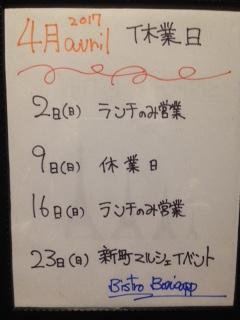 2017
4月 avril 休業日
2日(日) ランチのみ営業
9日(日) 休業日
16日(日) ランチのみ営業
23日(日) 新町マルシェイベント
Bistro